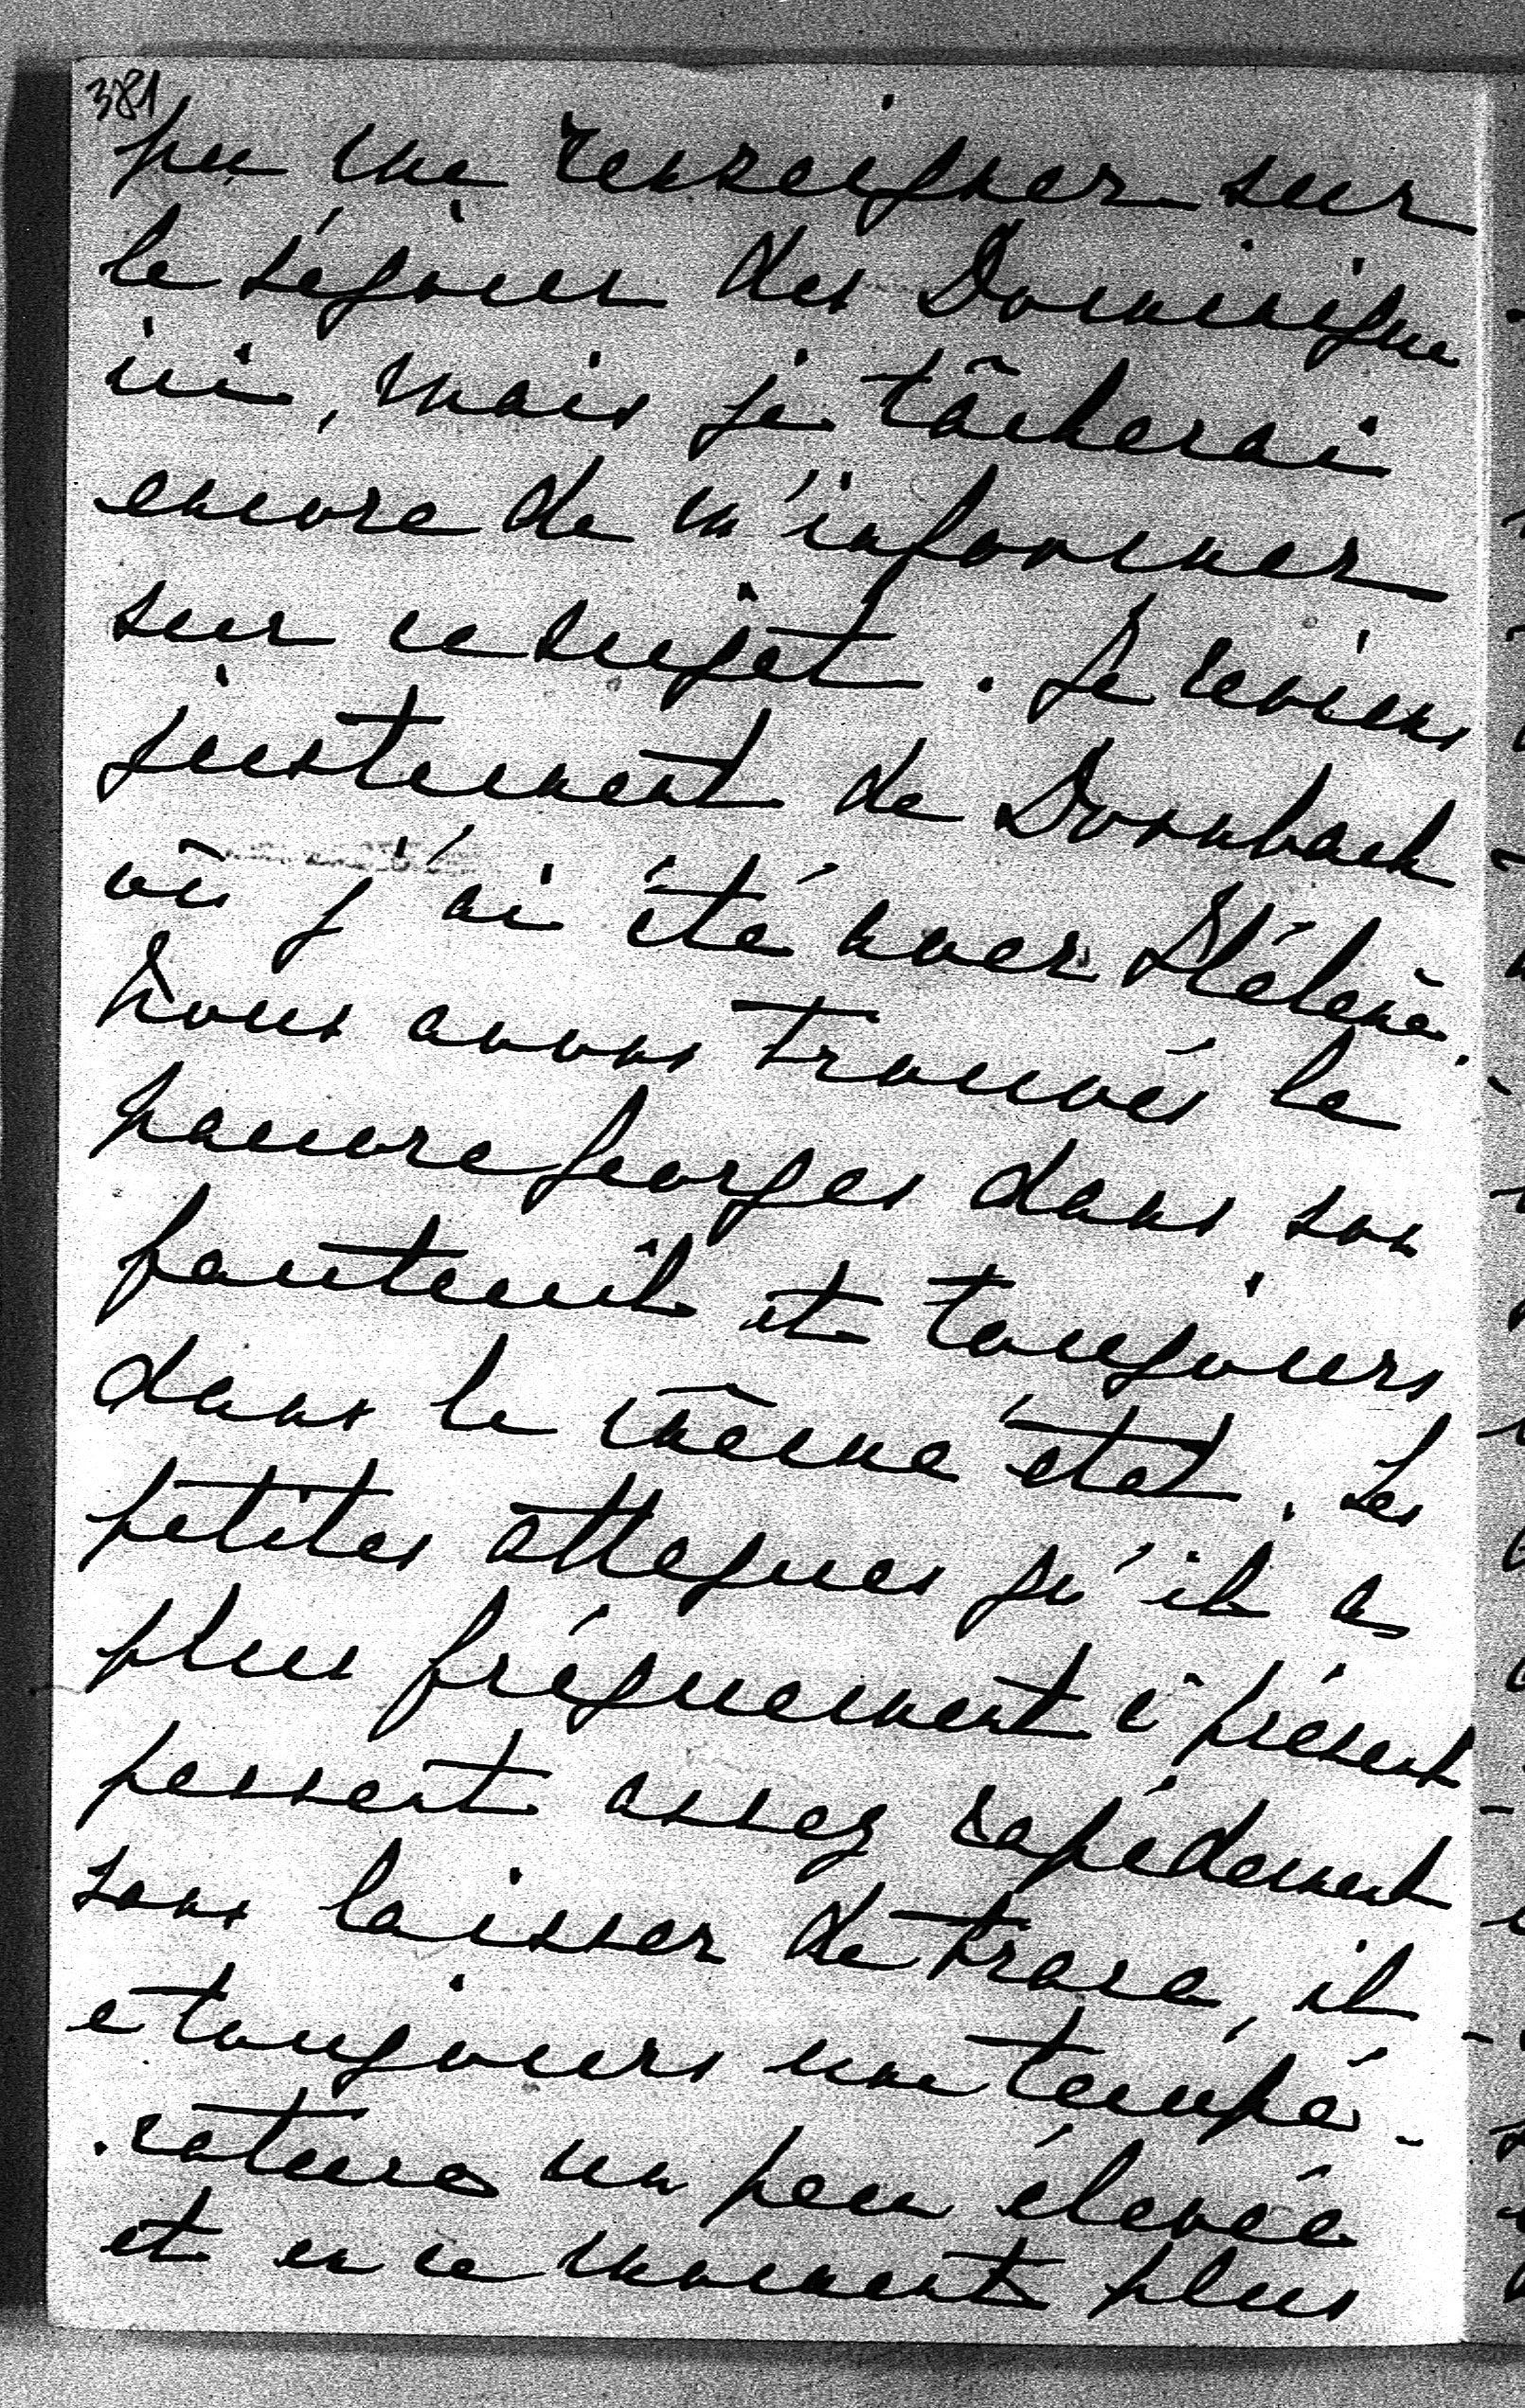 381
pu me renseigner sur
le séjour des Dominique
ici, mais je tâcherai
encore de m'informer
sur ce sujet. Je reviens
justement de Dornbach
où j'ai été avec Hélène.
Nous avons trouvés le
pauvre Georges dans son
fauteuil et toujours
dans le même état. Les
petites attaques qu'il a
plus fréquement à présent
passent assez rapidement
sans laisser de trace, il
a toujours une tempé-
rature un peu élevée
et en ce moment plus